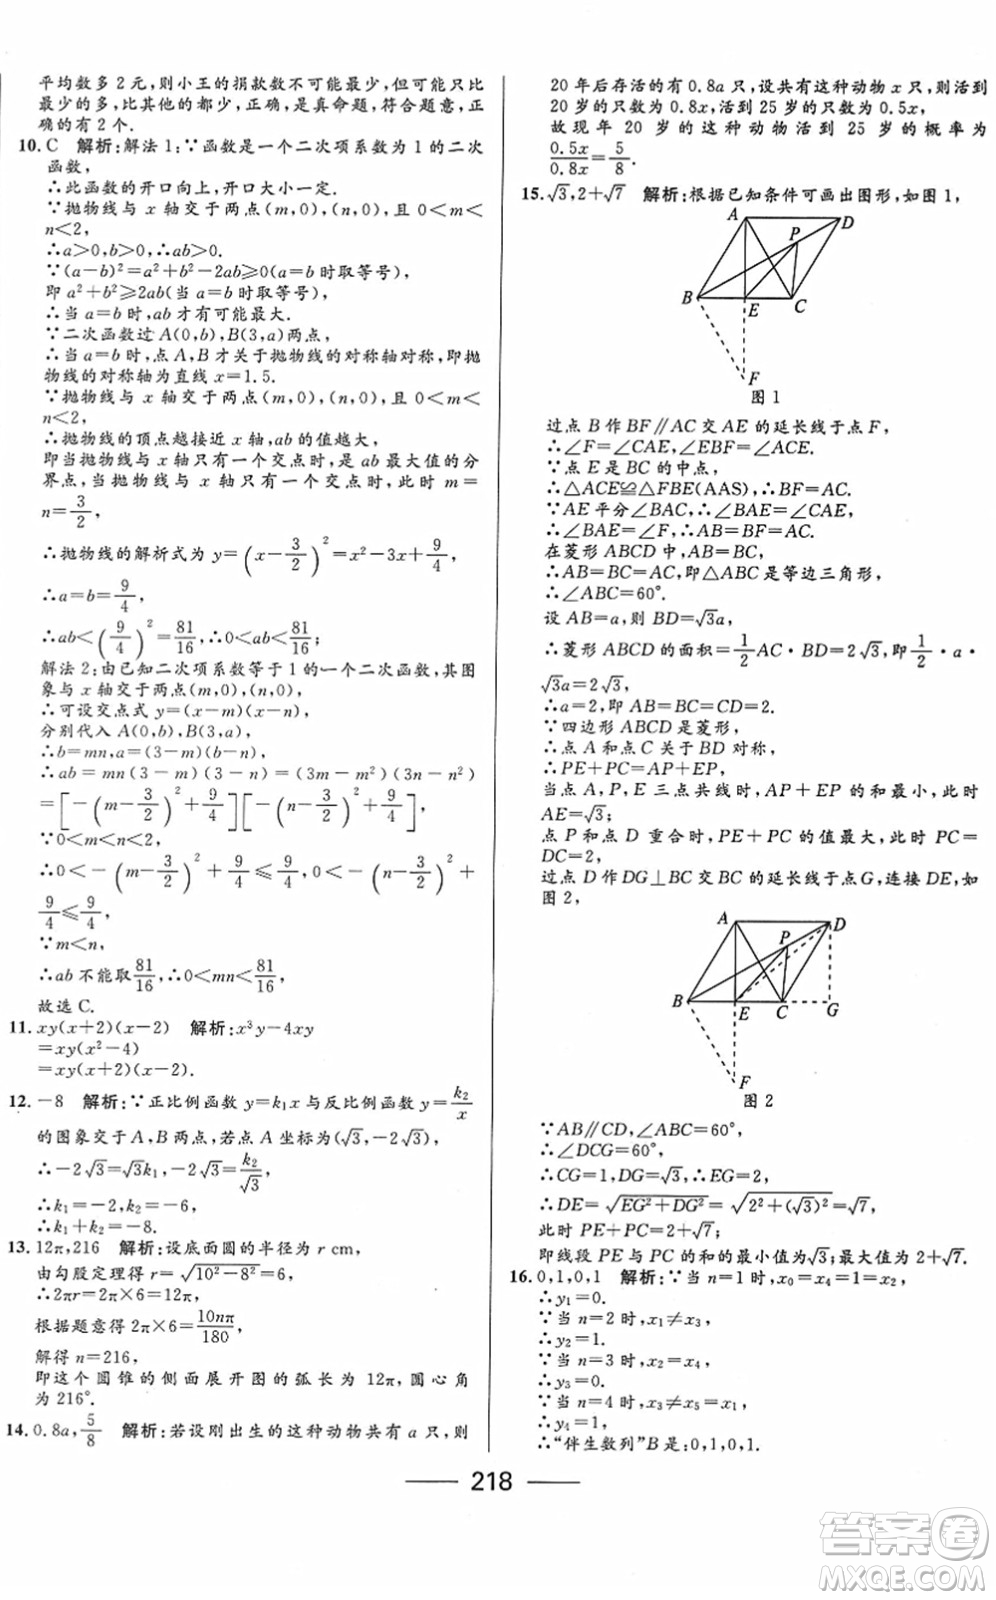 平均数多 2 元,则小王的捐款数不可能最少,但可能只比
最少的多,比其他的都少,正确,是真命题,符合题意,正
确的有 2 个.
10. C 解析:解法 1:∵函数是一个二次项系数为 1 的二次
函数,
∴此函数的开口向上,开口大小一定.
∵抛物线与 x 轴交于两点(m,0),(n,0),且 0<m<
n<2,
∴a>0,b>0,∴ab>0.
∵(a-b)²=a²+b²-2ab≥0(当 a=b 时取等号),
即 a²+b²≥2ab(当 a=b 时取等号),
∴当 a=b 时,ab 才有可能最大.
∵二次函数过 A(0,b),B(3,a)两点,
∴当 a=b 时,点 A,B 才关于抛物线的对称轴对称,即抛
物线的对称轴为直线 x=1.5.
∵抛物线与 x 轴交于两点(m,0),(n,0),且 0<m<
n<2,
∴抛物线的顶点越接近 x 轴,ab 的值越大,
即当抛物线与 x 轴只有一个交点时,是 ab 最大值的分
界点,当抛物线与 x 轴只有一个交点时,此时 m=
n=3/2,
∴抛物线的解析式为 y=(x-3/2)²=x²-3x+9/4,
∴a=b=9/4,
∴ab<(9/4)²=81/16,∴0<ab<81/16;
解法 2:由已知二次项系数等于 1 的一个二次函数,其图
象与 x 轴交于两点(m,0),(n,0),
∴可设交点式 y=(x-m)(x-n),
分别代入 A(0,b),B(3,a),
∴b=mn,a=(3-m)(3-n),
∴ab=mn(3-m)(3-n)=(3m-m²)(3n-n²)
=[-(m-3/2)²+9/4][-(n-3/2)²+9/4],
∵0<m<n<2,
∴0<-(m-3/2)²+9/4≤9/4,0<-(n-3/2)²+
9/4≤9/4,
∵m<n,
∴ab 不能取81/16,∴0<mn<81/16,
故选 C.
11. xy(x+2)(x-2) 解析:x³y-4xy
=xy(x²-4)
=xy(x+2)(x-2).
12. -8 解析:∵正比例函数 y=k₁x 与反比例函数 y=k₂/x
的图象交于 A,B 两点,若点 A 坐标为(√3,-2√3),
∴-2√3=√3k₁,-2√3=k₂/√3,
∴k₁=-2,k₂=-6,
∴k₁+k₂=-8.
13. 12π,216 解析:设底面圆的半径为 r cm,
由勾股定理得 r=√(10²-8²)=6,
∴2πr=2π×6=12π,
根据题意得 2π×6=10nπ/180,
解得 n=216,
即这个圆锥的侧面展开图的弧长为 12π,圆心角
为 216°.
14. 0.8a,5/8 解析:若设刚出生的这种动物共有 a 只,则
20 年后存活的有 0.8a 只,设共有这种动物 x 只,则活到
20 岁的只数为 0.8x,活到 25 岁的只数为 0.5x,
故现年 20 岁的这种动物活到 25 岁的概率为
0.5x/0.8x=5/8.
15. √3,2+√7 解析:根据已知条件可画出图形,如图 1,
A D P B E C F
图 1
过点 B 作 BF∥AC 交 AE 的延长线于点 F,
∴∠F=∠CAE,∠EBF=∠ACE.
∵点 E 是 BC 的中点,
∴△ACE≌△FBE(AAS),∴BF=AC.
∵AE 平分∠BAC,∴∠BAE=∠CAE,
∴∠BAE=∠F,∴AB=BF=AC.
在菱形 ABCD 中,AB=BC,
∴AB=BC=AC,即△ABC 是等边三角形,
∴∠ABC=60°.
设 AB=a,则 BD=√3a,
∴菱形 ABCD 的面积=1/2AC·BD=2√3,即1/2·a·
√3a=2√3,
∴a=2,∴AB=BC=CD=2.
∵四边形 ABCD 是菱形,
∴点 A 和点 C 关于 BD 对称,
∴PE+PC=AP+EP,
当点 A,P,E 三点共线时,AP+EP 的和最小,此时
AE=√3;
点 P 和点 D 重合时,PE+PC 的值最大,此时 PC=
DC=2,
过点 D 作 DG⊥BC 交 BC 的延长线于点 G,连接 DE,如
图 2,
A D P B E C G F
图 2
∵AB∥CD,∠ABC=60°,
∴∠DCG=60°,
∴CG=1,DG=√3,∴EG=2,
∴DE=√(EG²+DG²)=√(2²+(√3)²)=√7,
此时 PE+PC=2+√7;
即线段 PE 与 PC 的和的最小值为√3;最大值为 2+√7.
16. 0,1,0,1 解析:∵当 n=1 时,x₀=x₄=1=x₂,
∴y₁=0.
∵当 n=2 时,x₁≠x₃,
∴y₂=1.
∵当 n=3 时,x₂=x₄,
∴y₃=0.
∵当 n=4 时,x₃≠x₅=x₁,
∴y₄=1.
∴“伴生数列”B 是:0,1,0,1.
218
答案卷
MXQE.COM